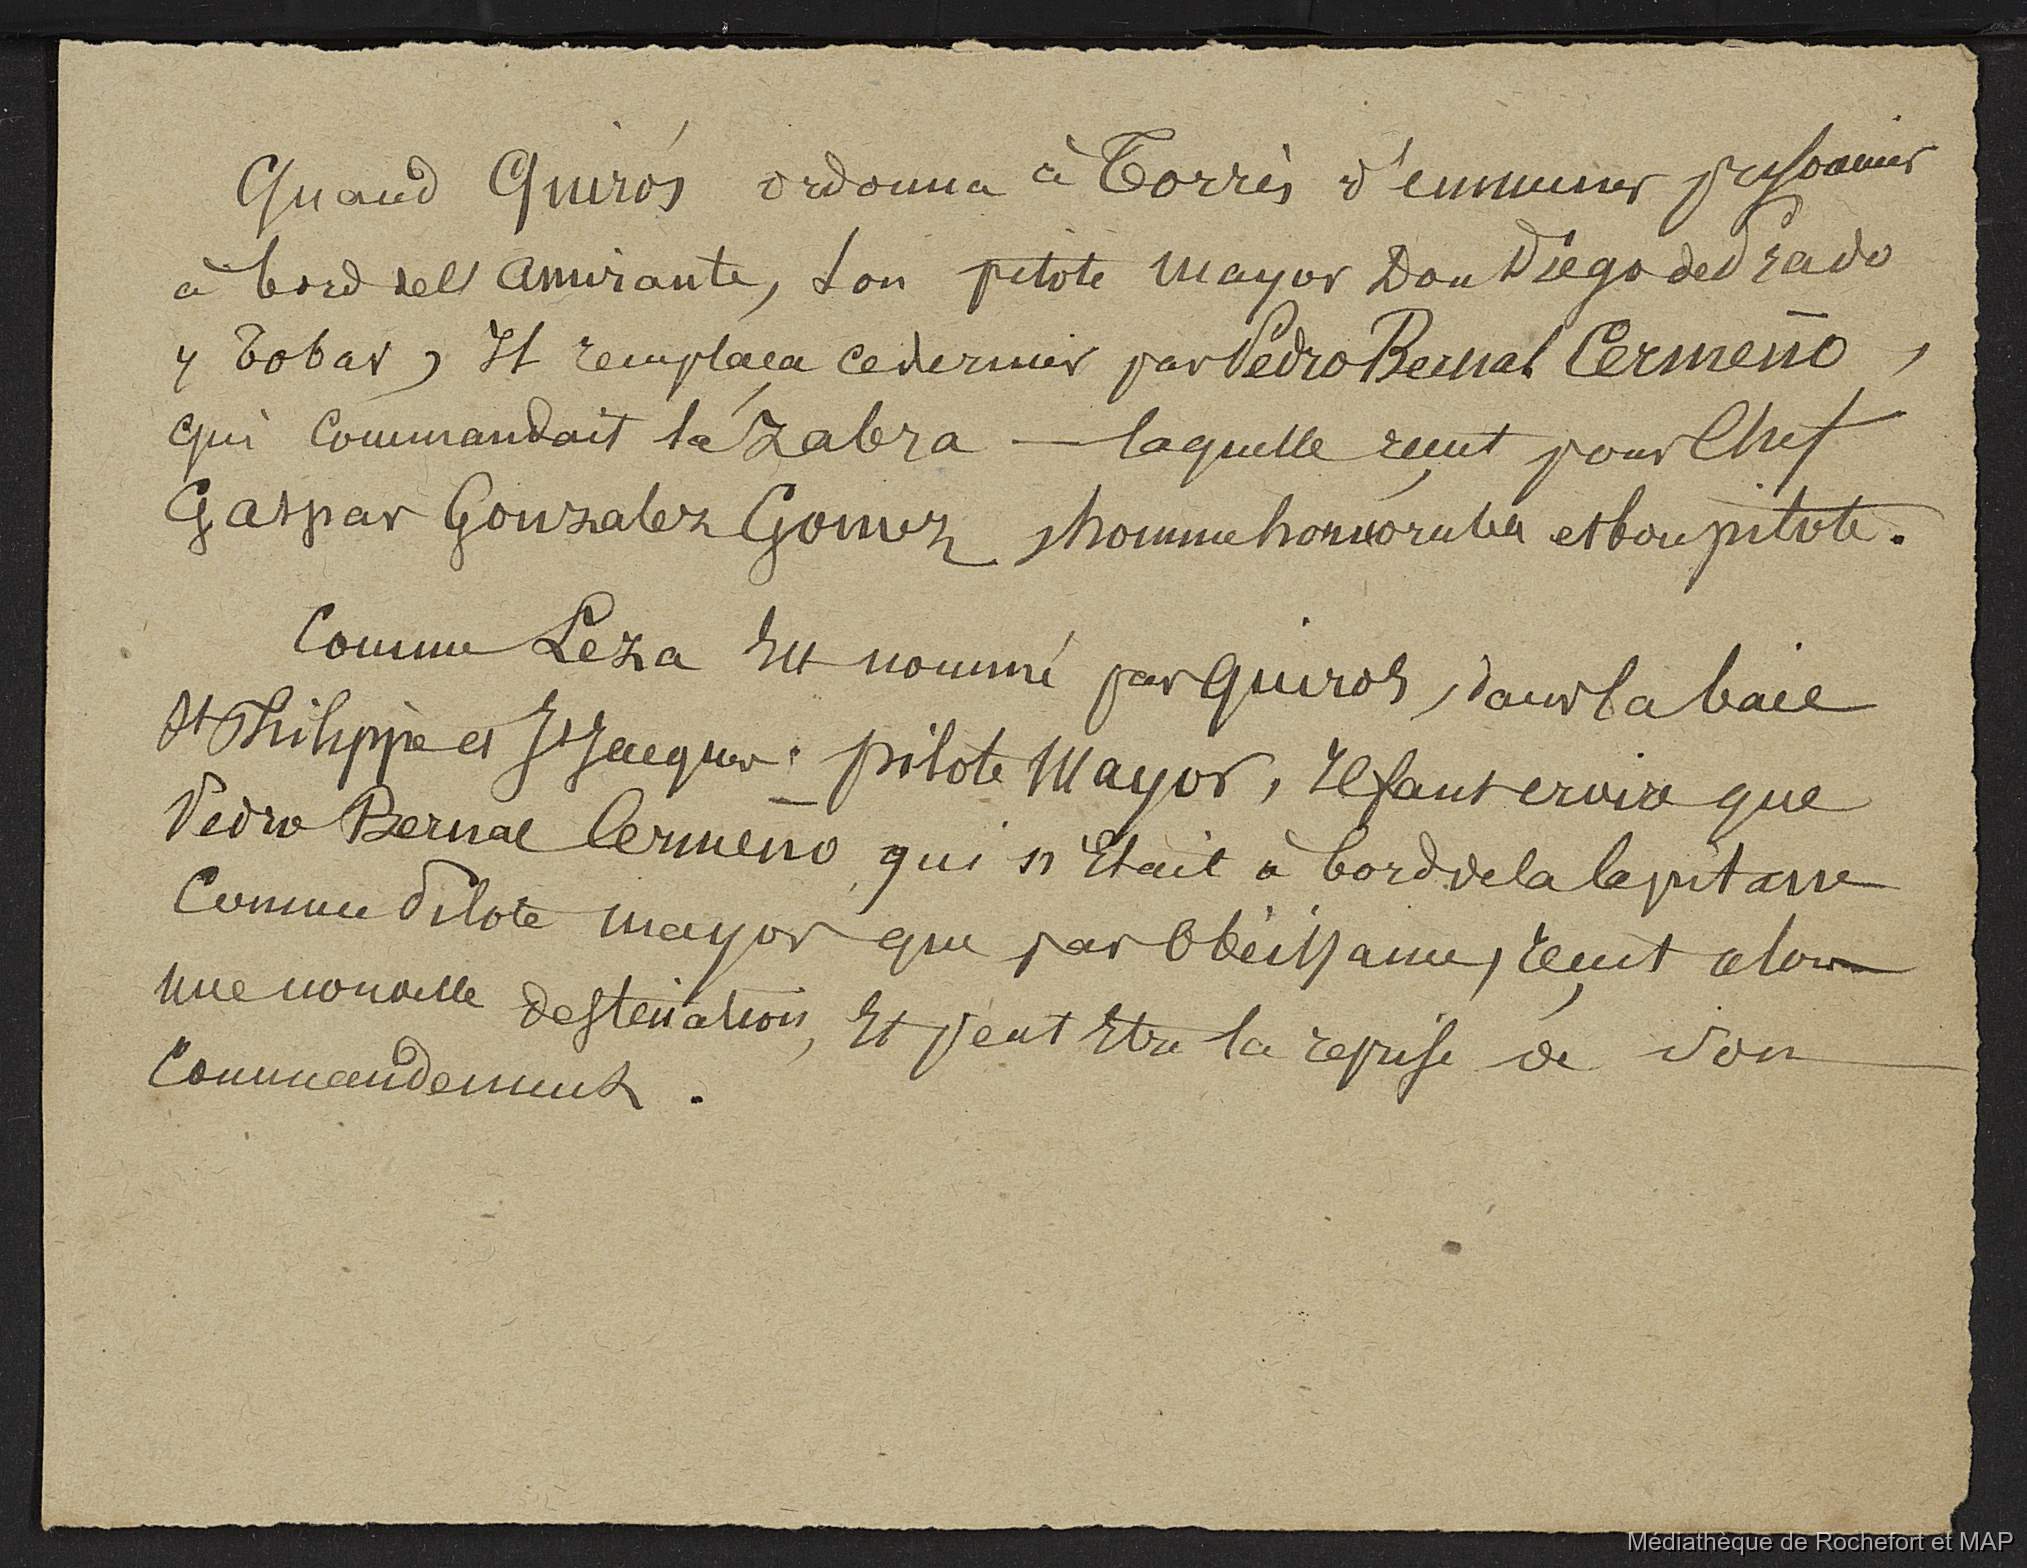 Quand Quirós ordonna à Torrès d'emmener prisonnier
à bord de l'Amirante, son pilote mayor Don Diego de Prado
y Tobar, Il remplaça ce dernier par Pedro Bernal Cermeño,
qui commandait la Zabra — laquelle reçut pour Chef
Gaspar Gonzalez Gomez, homme honorable et bon pilote.
Comme Leza Est nommé par Quiros, dans la baie
St Philippe et St Jacques pilote Mayor, Il faut croire que
Pedro Bernal Cermeño, qui n'Etait à bord de la Capitane
Comme Pilote mayor que par Obéissance, reçut alors
une nouvelle destination, Et peut Etre la reprise de son
Commandement.
Médiathèque de Rochefort et MAP